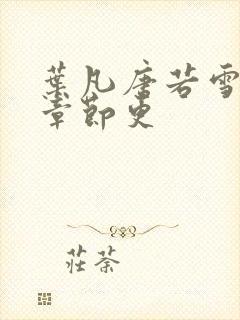 葉凡唐若雪
章節更
莊荼